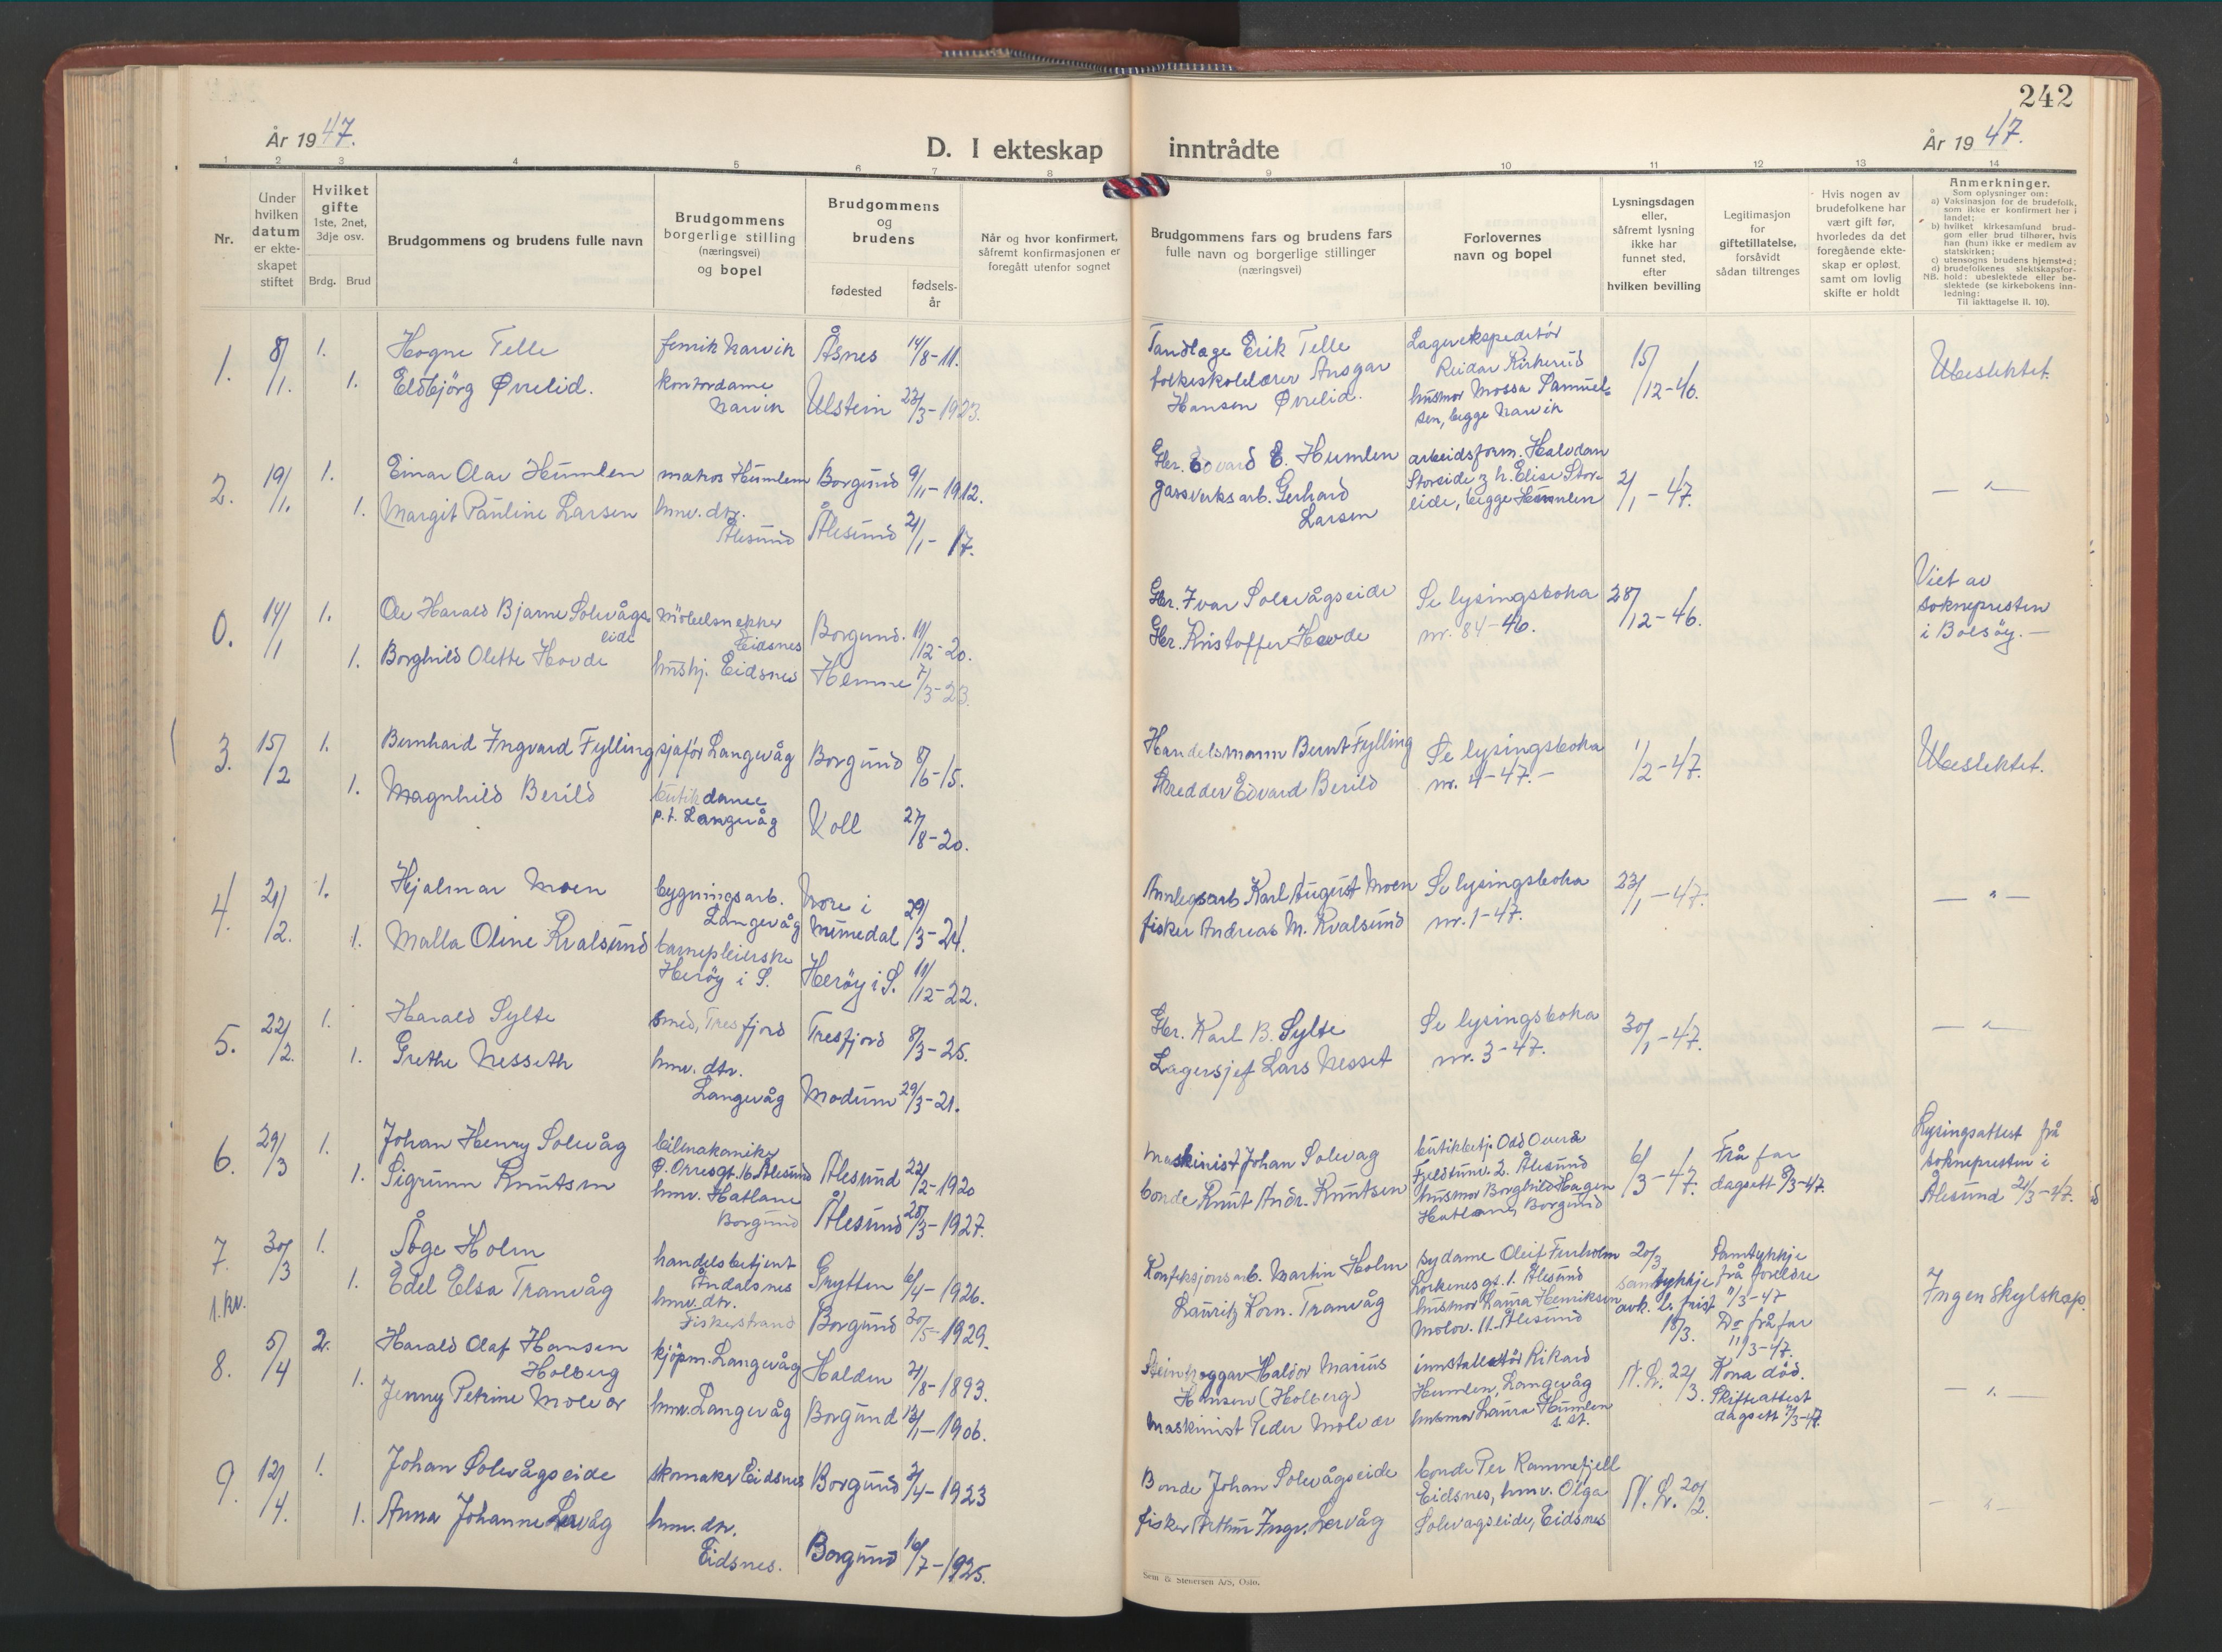 242
År 1947.
D. I ekteskap inntrådte
År 1947.
1 2 3 4 5 6 7 8 9 10 11 12 13 14
Nr.
Under
hvilken
datum
er ekte-
skapet
stiftet
Hvilket
gifte
1ste, 2net,
3dje osv.
Brdg. Brud
Brudgommens og brudens fulle navn
Brudgommens
borgerlige stilling
(næringsvei)
og bopel
Brudgommens
og
brudens
fødested
fødsels-
år
Når og hvor konfirmert,
såfremt konfirmasjonen er
foregått utenfor sognet
Brudgommens fars og brudens fars
fulle navn og borgerlige stillinger
(næringsvei)
Forlovernes
navn og bopel
Lysningsdagen
eller,
såfremt lysning
ikke har
funnet sted,
efter
hvilken bevilling
Legitimasjon
for
giftetillatelse,
forsåvidt
sådan tiltrenges
Hvis nogen av
brudefolkene har
vært gift før,
hvorledes da det
foregående ekte-
skap er opløst,
samt om lovlig
skifte er holdt
Anmerkninger.
Som oplysninger om:
a) Vaksinasjon for de brudefolk,
som ikke er konfirmert her i
landet;
b) hvilket kirkesamfund brud-
gom eller brud tilhører, hvis
han (hun) ikke er medlem av
statskirken;
c) utensogns brudens hjemsted;
d) brudefolkenes slektskapsfor-
NB. hold: ubeslektede eller be-
slektede (se kirkebokens inn-
ledning:
Til iakttagelse II. 10).
1. 8/1. 1. Hogne Telle fenrik Narvik Åsnes 14/8-11.
1. Eldbjörg Øvrelid. kontordame
Narvik Ulstein 23/3-1923.
Tandlæge Erik Telle
folkeskolelærer Ansgar
Hansen Øvrelid.
Lagerekspeditör
Reidar Kirkerud
husmor Mossa Samuel-
sen, begge Narvik
15/12-46.
Ubeslektet.
2. 19/1. 1. Einar Olav Humlen matros Humlen Borgund 9/11-1912.
1. Margit Pauline Larsen hmv. dtr.
Ålesund Ålesund 21/1-17.
Gbr. Edvard E. Humlen
gassverksarb. Gerhard
Larsen
arbeidsform. Halvdan
Storeide & h. Elise Stor-
eide, begge Humlen
2/1-47.
— " —
0. 14/1 1. Ole Harald Bjarne Solevågs-
eide
Möbelsnekker
Eidsnes Borgund. 11/12-20.
1. Borghild Olette Hovde hushj. Eidsnes Hemne 7/3-23.
Gbr. Ivar Solevågseide
Gbr. Kristoffer Hovde
Se lysingsboka
nr. 84-46.
28/12-46.
Viet av
soknepresten
i Bolsöy. —
3. 15/2 1. Bernhard Ingvard Fylling sjåför Langevåg Borgund 8/6-15.
1. Magnhild Berild butikdame
p.t. Langevåg Voll 27/8-20.
Handelsmann Bernt Fylling
Skredder Edvard Berild
Se lysingsboka
nr. 4-47. —
1/2-47.
Ubeslektet.
4. 21/2. 1. Hjalmar Moen bygningsarb.
Langevåg Nore i
Numedal 29/3-24.
1. Malla Oline Kvalsund barnepleierske
Heröy i S. Heröy i S. 11/12-22.
Annlegsarb Karl August Moen
fisker Andreas M. Kvalsund
Se lysingsboka
nr. 1-47.
23/1-47.
— " —
5. 22/2. 1. Harald Sylte smed, Tresfjord Tresfjord 8/3-25.
1. Grethe Nesseth hmv. dtr.
Langevåg Modum 29/3-21.
Gbr. Karl B. Sylte
Lagersjef Lars Nesset
Se lysingsboka
nr. 3-47.
30/1-47.
— " —
6. 29/3 1. Johan Henry Solevåg bilmekaniker
Ålesund Ålesund 22/2-1920
1. Sigrunn Knutsen hmv. Hatlane
Borgund Ålesund 28/3-1927.
Maskinist Johan Solevag
bonde Knut Andr. Knutsen
butikbetj. Odd Overå
2. Ålesund
husmor Borghild Hagen
Hatlane, Borgund
6/3-47.
Frå far
dagsett 8/3-47.
Lysingsattest frå
soknepresten i
Ålesund 21/3-47.
7. 30/3 1. Åge Holm handelsbetjent
Åndalsnes Grytten 6/4-1926.
1. Edel Elsa Tranvåg hmv. dtr.
Fiskerstrand Borgund 30/5-1929.
1. kv.
Konfeksjonsarb. Martin Holm
Lauritz Korn. Tranvåg
sydame Oleif Furholm
1. Ålesund
husmor Laura Henriksen
Molov. 11. Ålesund
20/3
samtykkje
avk. l. frist
18/3.
Samtykkje
frå foreldre
11/3-47
Do frå far
11/3-47.
Ingen skylskap.
8. 5/4 2. Harald Olaf Hansen
Holberg kjöpm. Langevåg Halden 21/8-1893.
1. Jenny Petrine Molvær hmv. Langevåg Borgund 13/1-1906.
Steinhoggar Haldor Marius
Hansen (Holberg)
Maskinist Peder Molvær
innstallatör Rikard
Humlen, Langevåg
husmor Laura Humlen
s. st.
N. L. 22/3.
Kona död.
Skifteattest
dagsett 11/3-47.
— " —
9. 12/4. 1. Johan Solevågseide skomaker Eidsnes Borgund 2/4-1923
1. Anna Johanne Lervåg hmv. dtr.
Eidsnes. Borgund 16/7-1925.
Bonde Johan Solevågseide
fisker Arthur Ingv. Lervåg
bonde Per Ramnefjell
Eidsnes, hmv. Olga
Solevagseide, Eidsnes
N. L. 20/2.
— " —
Sem & Stenersen A/S, Oslo.